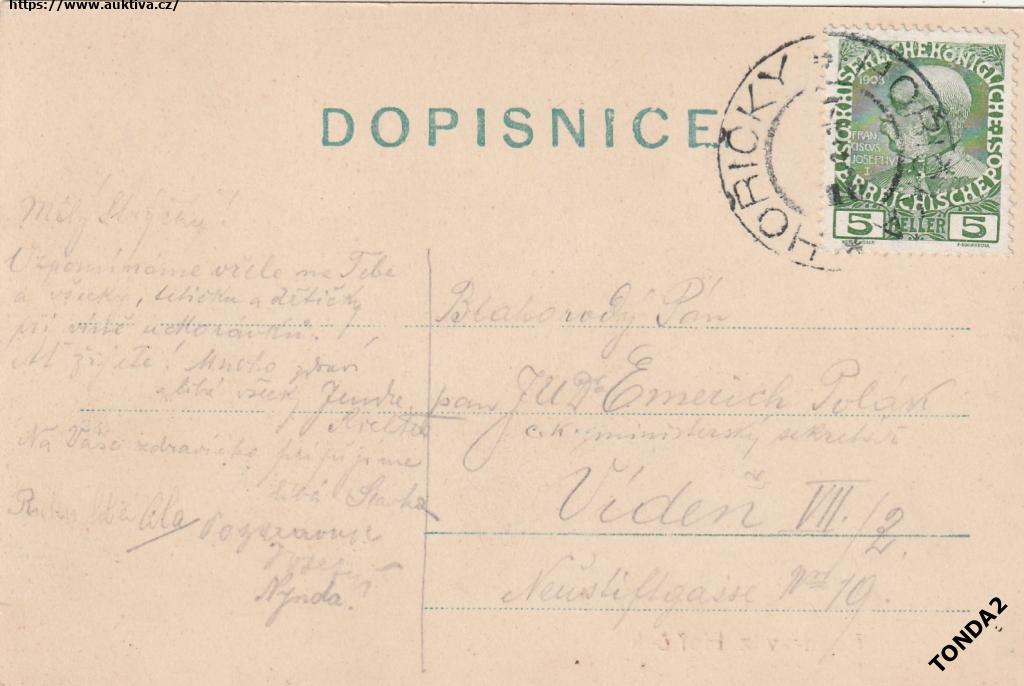 https://www.auktiva.cz/
DOPISNICE
HOŘIČKY
KAISERLICHE KÖNIGLICHE
ÖSTERREICHISCHE POST
1908
FRAN
CISCVS
JOSEPHVS
I
5 HELLER 5
Milý
Vzpomínáme vřele na Tebe
a všecky, tetičku a dětičky
při víně u Morávků.
Ať žijete! Mnoho zdraví
líbá všecky Jenda
Na Vaše zdravíčko připíjíme
líbá
Pozdravuje
Josef
Nyndá.
Blahorodý Pán
pan JUDr Emerich Polák
c. k. ministerský sekretář
Vídeň VII./2.
Neustiftgasse Nro 19.
TONDA2